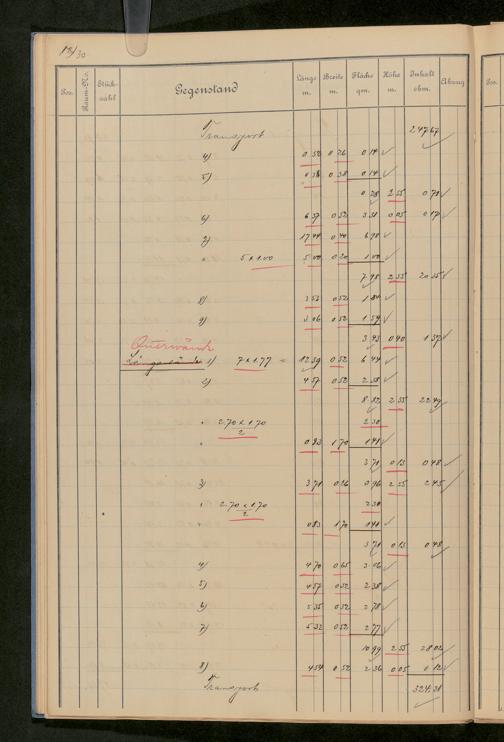 13/30
Pos. Raum-No. Stückzahl Gegenstand Länge m. Breite m. Fläche qm. Höhe m. Inhalt cbm. Abzug
Transport 247.67
4) 0.52 0.26 0.14
5) 0.38 0.38 0.14
0.28 2.55 0.70
6) 6.37 0.52 3.31 0.05 0.17
7) 17.44 0.40 6.98
" 5 x 1.00 5.00 0.20 1.00
7.98 2.55 20.35
8) 3.53 0.52 1.84
9) 3.06 0.52 1.59
3.43 0.40 1.37
Querwände
Längswände 1) 7 x 1.77 = 12.39 0.52 6.44
2) 4.57 0.52 2.38
8.82 2.55 22.49
" 2.70 x 1.70 / 2 2.30
" 0.83 1.70 1.41
3.71 0.13 0.48
3) 3.71 0.26 0.96 2.55 2.45
" 2.70 x 1.70 / 2 2.30
" 0.83 1.70 1.41
3.71 0.13 0.48
4) 4.70 0.65 3.06
5) 4.57 0.52 2.38
6) 5.35 0.52 2.78
7) 5.32 0.52 2.77
10.99 2.55 28.02
8) 4.54 0.52 2.36 0.05 0.12
Transport 324.31